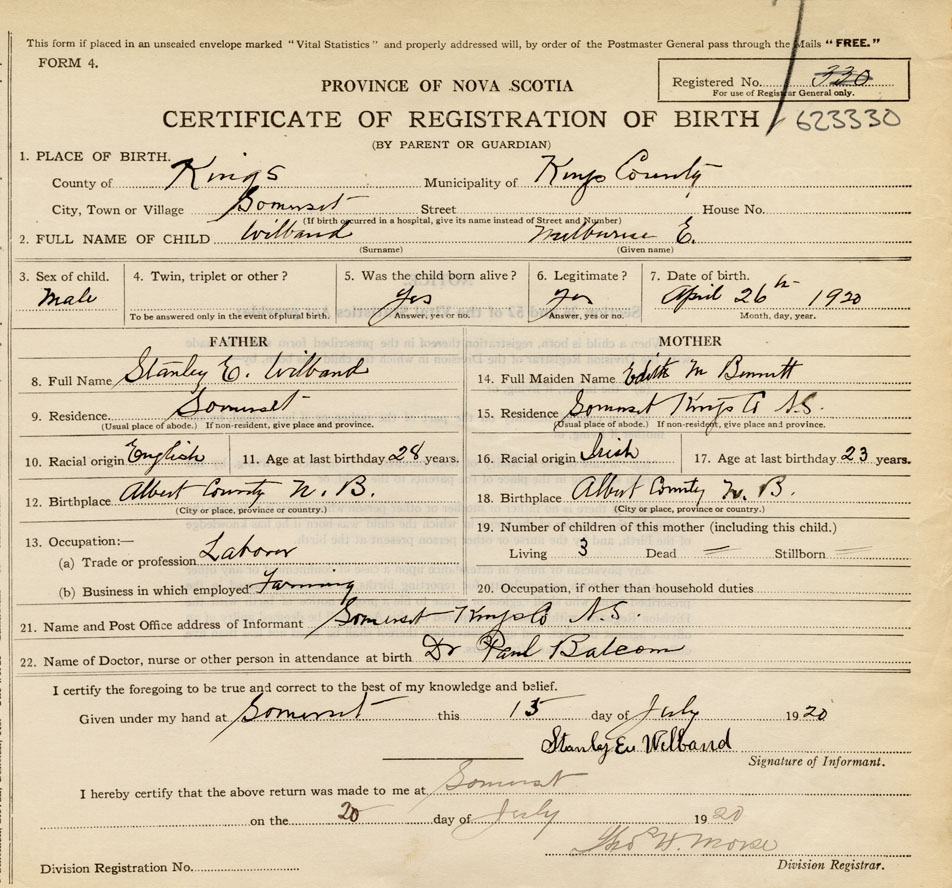 This form if placed in an unsealed envelope marked "Vital Statistics" and properly addressed will, by order of the Postmaster General pass through the Mails "FREE."
FORM 4.
PROVINCE OF NOVA SCOTIA
Registered No. 330
For use of Registrar General only.
CERTIFICATE OF REGISTRATION OF BIRTH 623330
(BY PARENT OR GUARDIAN)
1. PLACE OF BIRTH.
County of Kings Municipality of Kings County
City, Town or Village Somerset Street House No.
(If birth occurred in a hospital, give its name instead of Street and Number)
2. FULL NAME OF CHILD Wilband E.
(Surname) (Given name)
3. Sex of child. 4. Twin, triplet or other? 5. Was the child born alive? 6. Legitimate? 7. Date of birth.
Male Yes Yes April 26th 1920
To be answered only in the event of plural birth. Answer, yes or no. Answer, yes or no. Month, day, year.
FATHER MOTHER
8. Full Name Stanley E. Wilband 14. Full Maiden Name Edith M Bennett
9. Residence. Somerset 15. Residence Somerset Kings Co N.S.
(Usual place of abode.) If non-resident, give place and province. (Usual place of abode.) If non-resident, give place and province.
10. Racial origin English 11. Age at last birthday 28 years. 16. Racial origin Irish 17. Age at last birthday 23 years.
12. Birthplace Albert County N. B. 18. Birthplace Albert County N. B.
(City or place, province or country.) (City or place, province or country.)
13. Occupation:— 19. Number of children of this mother (including this child.)
(a) Trade or profession Laborer Living 3 Dead — Stillborn —
(b) Business in which employed Farming 20. Occupation, if other than household duties
21. Name and Post Office address of Informant Somerset Kings Co N.S.
22. Name of Doctor, nurse or other person in attendance at birth Dr Paul Balcom
I certify the foregoing to be true and correct to the best of my knowledge and belief.
Given under my hand at Somerset this 15 day of July 1920
Stanley Wilband
Signature of Informant.
I hereby certify that the above return was made to me at Somerset
on the 20 day of July 1920
Thos W. Morse
Division Registration No. Division Registrar.